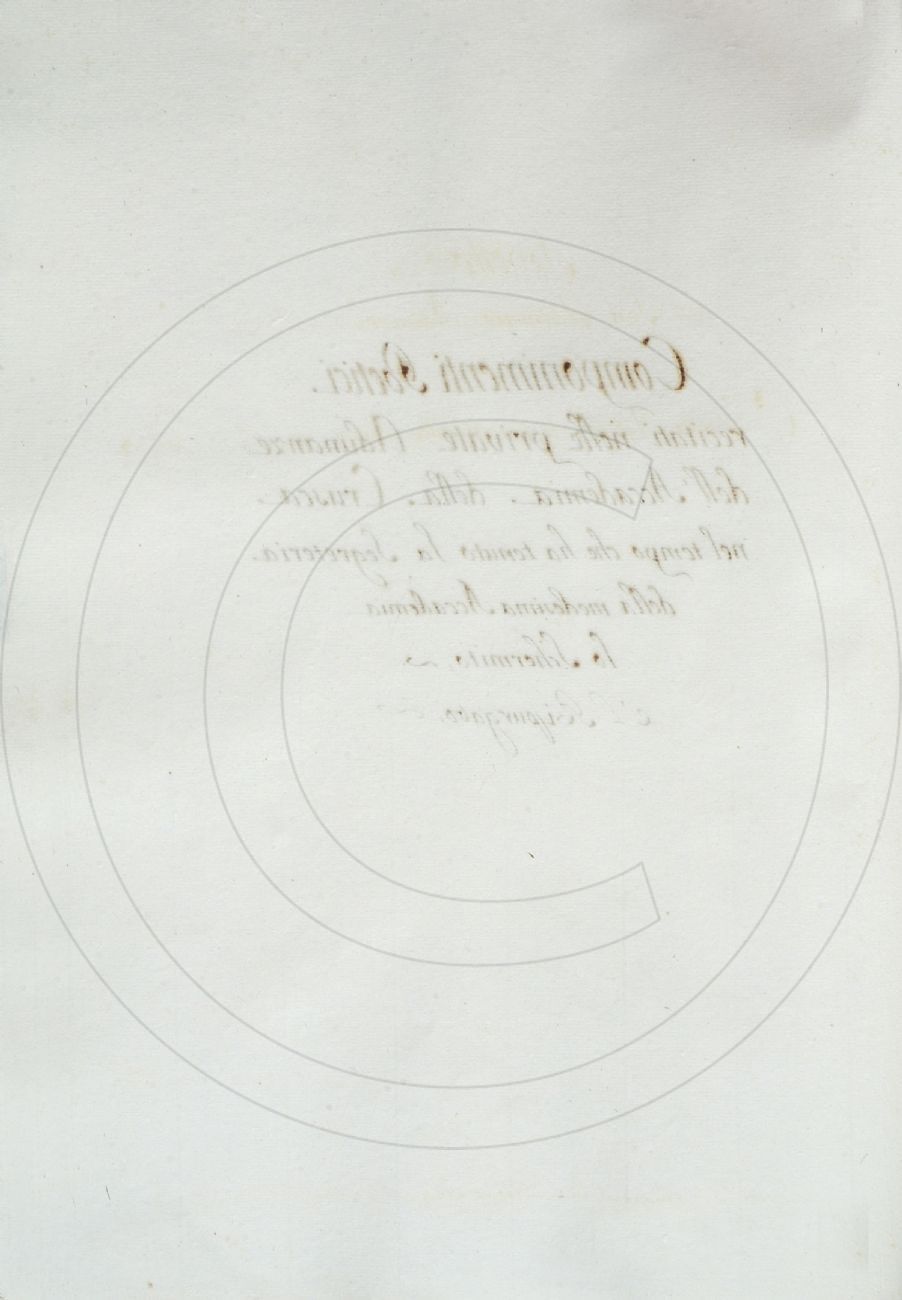 Componimenti Poetici.
recitati nelle private Adunanze
dell'Accademia della Crusca.
nel tempo che ha tenuto la Segreteria.
della medesima Accademia
lo Schermito.
Ripurgato.